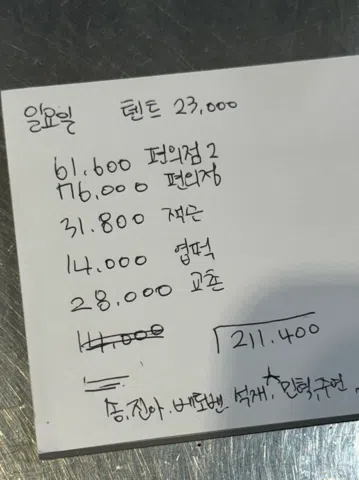 일요일 텐트 23,000
61,600 편의점 2
76,000 편의점
31.800 재근
14.000 엽떡
28,000 교촌
14,000
211.400
송, 진아, 베도벤, 석재, 민혁, 주연,